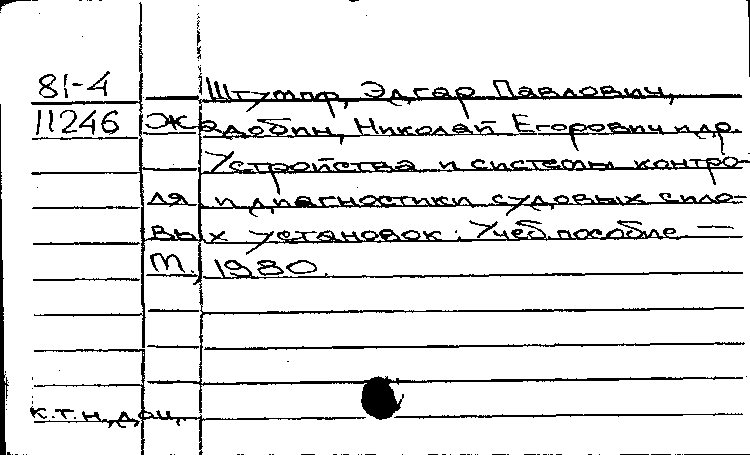 81-4 Штумпф, Эдгар Павлович,
11246 Жадобин, Николай Егорович и др.
Устройства и системы контро-
ля и диагностики судовых сило-
вых установок: Учеб. пособие —
М., 1980.
к.т.н., доц.